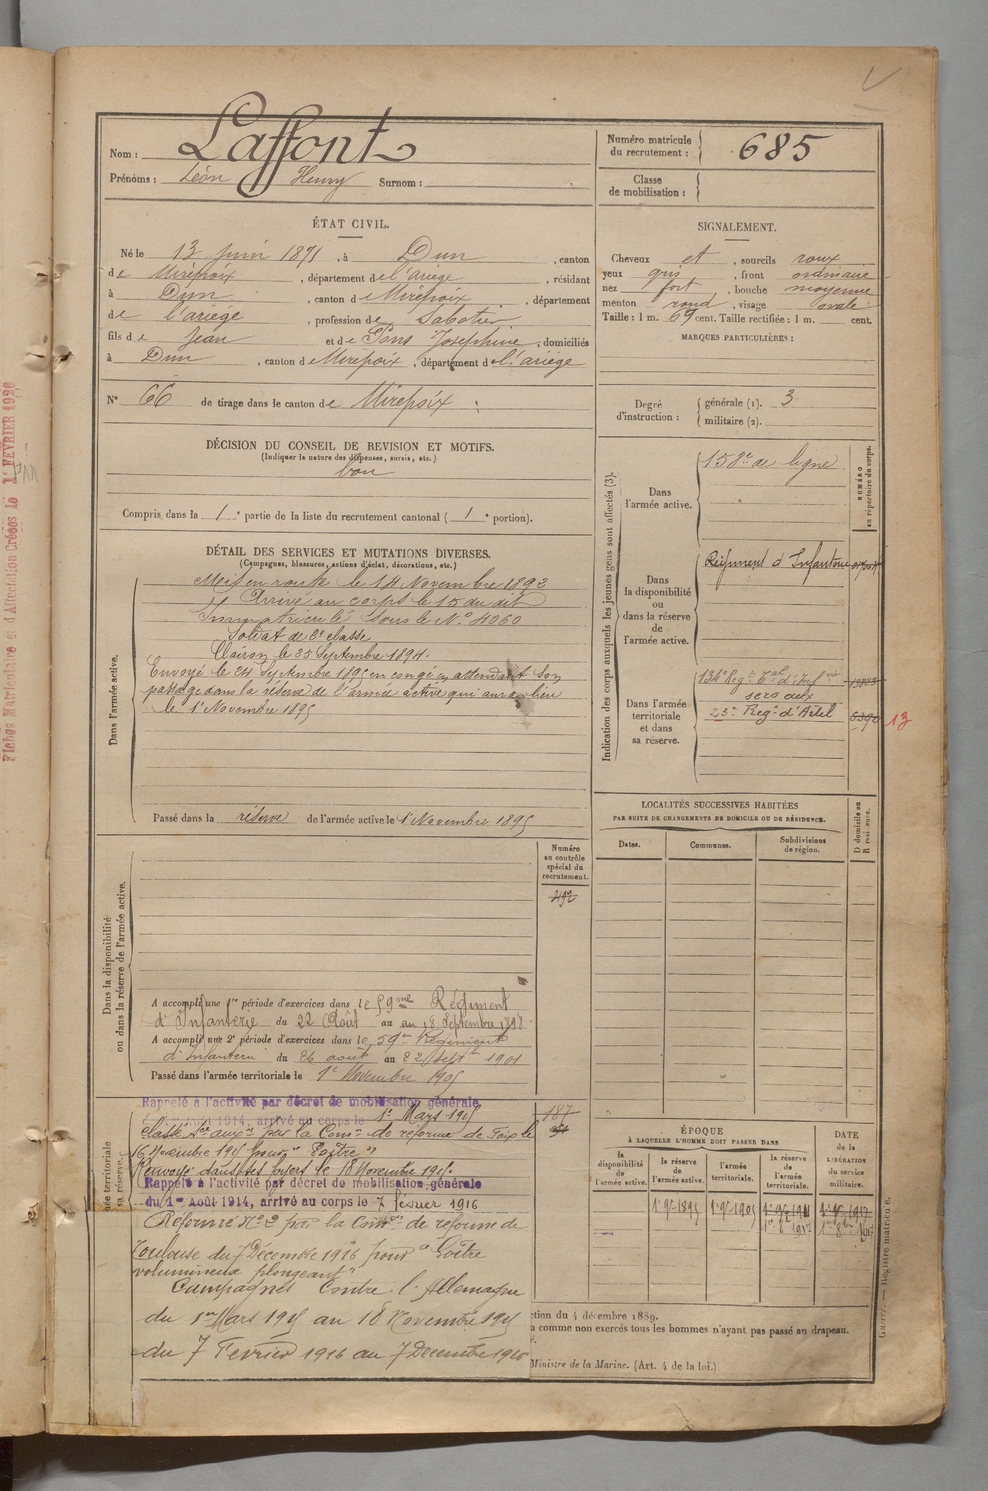 Nom : Laffont
Prénoms : Léon Henry Surnom :
Numéro matricule
du recrutement : 685
Classe
de mobilisation :
ÉTAT CIVIL.
Né le 13 juin 1871, à Dun, canton
de Mirepoix, département de l'ariège, résidant
à Dun, canton de Mirepoix, département
de l'ariège, profession de Sabotier
fils de Jean et de Pons Josephine, domiciliés
à Dun, canton de Mirepoix, département de l'ariège
N° 66 de tirage dans le canton de Mirepoix :
SIGNALEMENT.
Cheveux et, sourcils roux
yeux gris, front ordinaire
nez fort, bouche moyenne
menton rond, visage ovale
Taille : 1 m. 69 cent. Taille rectifiée : 1 m. cent.
MARQUES PARTICULIÈRES :
Degré
d'instruction :
générale (1). 3
militaire (2).
DÉCISION DU CONSEIL DE REVISION ET MOTIFS.
(Indiquer la nature des dispenses, sursis, etc.)
bon
Compris dans la 1e partie de la liste du recrutement cantonal ( 1e portion).
DÉTAIL DES SERVICES ET MUTATIONS DIVERSES.
(Campagnes, blessures, actions d'éclat, décorations, etc.)
Dans l'armée active.
Mis en route le 14 Novembre 1892
Arrivé au corps le 15 du dit
Immatriculé sous le N° 4060
Soldat de 2e classe
Clairon le 25 Septembre 1894.
Envoyé le 24 Septembre 1895 en congé en attendant son
passage dans la réserve de l'armée active qui aura lieu
le 1er Novembre 1895
Passé dans la réserve de l'armée active le 1er Novembre 1895
Indication des corps auxquels les jeunes gens sont affectés (3).
NUMÉRO
au répertoire du corps.
Dans
l'armée active.
158e de ligne
Dans
la disponibilité
ou
dans la réserve
de
l'armée active.
Régiment d'Infanterie
Dans l'armée
territoriale
et dans
sa réserve.
134e Regt Tal d'Infrie
serv aux
23e Regt d'Artil
5390 13
LOCALITÉS SUCCESSIVES HABITÉES
PAR SUITE DE CHANGEMENTS DE DOMICILE OU DE RÉSIDENCE.
Dates. Communes. Subdivisions
de région.
D domicile ou
R résidence.
Dans la disponibilité
ou dans la réserve de l'armée active.
Numéro
au contrôle
spécial du
recrutement.
492
A accompli une 1re période d'exercices dans le 59me Régiment
d'Infanterie du 22 Août au au 18 Septembre 1898
A accompli une 2e période d'exercices dans le 59e Régiment
d'Infanterie du 26 août au 22 Sept. 1901
Passé dans l'armée territoriale le 1er Novembre 1905
Rappelé à l'activité par décret de mobilisation générale
août 1914, arrivé au corps le 1er Mars 1915
187
classé Sce auxre par la Comon de réforme de Foix le
16 Novembre 1915 pour "Goître"
Renvoyé dans ses foyers le 18 Novembre 1915.
Rappelé à l'activité par décret de mobilisation générale
du 1er Août 1914, arrivé au corps le 7 février 1916
Réformé N° 2 par la Comon de réforme de
Toulouse du 7 Décembre 1916 pour "Goître
volumineux plongeant"
Campagnes Contre l'Allemagne
du 1er Mars 1915 au 18 Novembre 1915
du 7 Fevrier 1916 au 7 Decembre 1916
ée territoriale
sa réserve.
ÉPOQUE
À LAQUELLE L'HOMME DOIT PASSER DANS
DATE
DE LA
LIBÉRATION
du service
militaire.
la
disponibilité
de
l'armée active.
la réserve
de
l'armée active.
l'armée
territoriale.
la réserve
de
l'armée
territoriale.
1er 9bre 1895 1er 9bre 1905
ction du 4 décembre 1889.
a comme non exercés tous les hommes n'ayant pas passé au drapeau.
Ministre de la Marine. (Art. 4 de la loi.)
Guerre. — Registre matricule.
Fiches Matriculaire et d'Affectation Créées le 1 FÉVRIER 1920